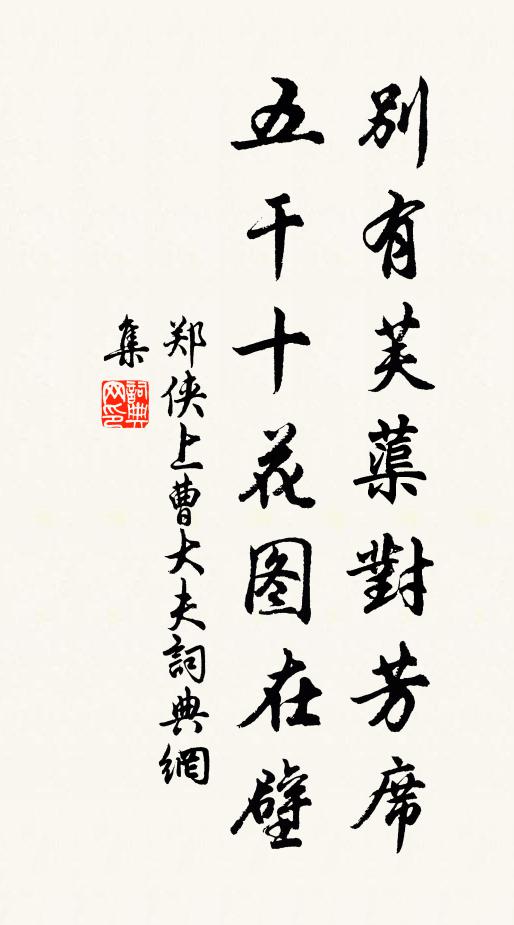 别有芙蕖對芳席
五干十花图在壁
郑侠上曹大夫詞典網
集
詞典网印